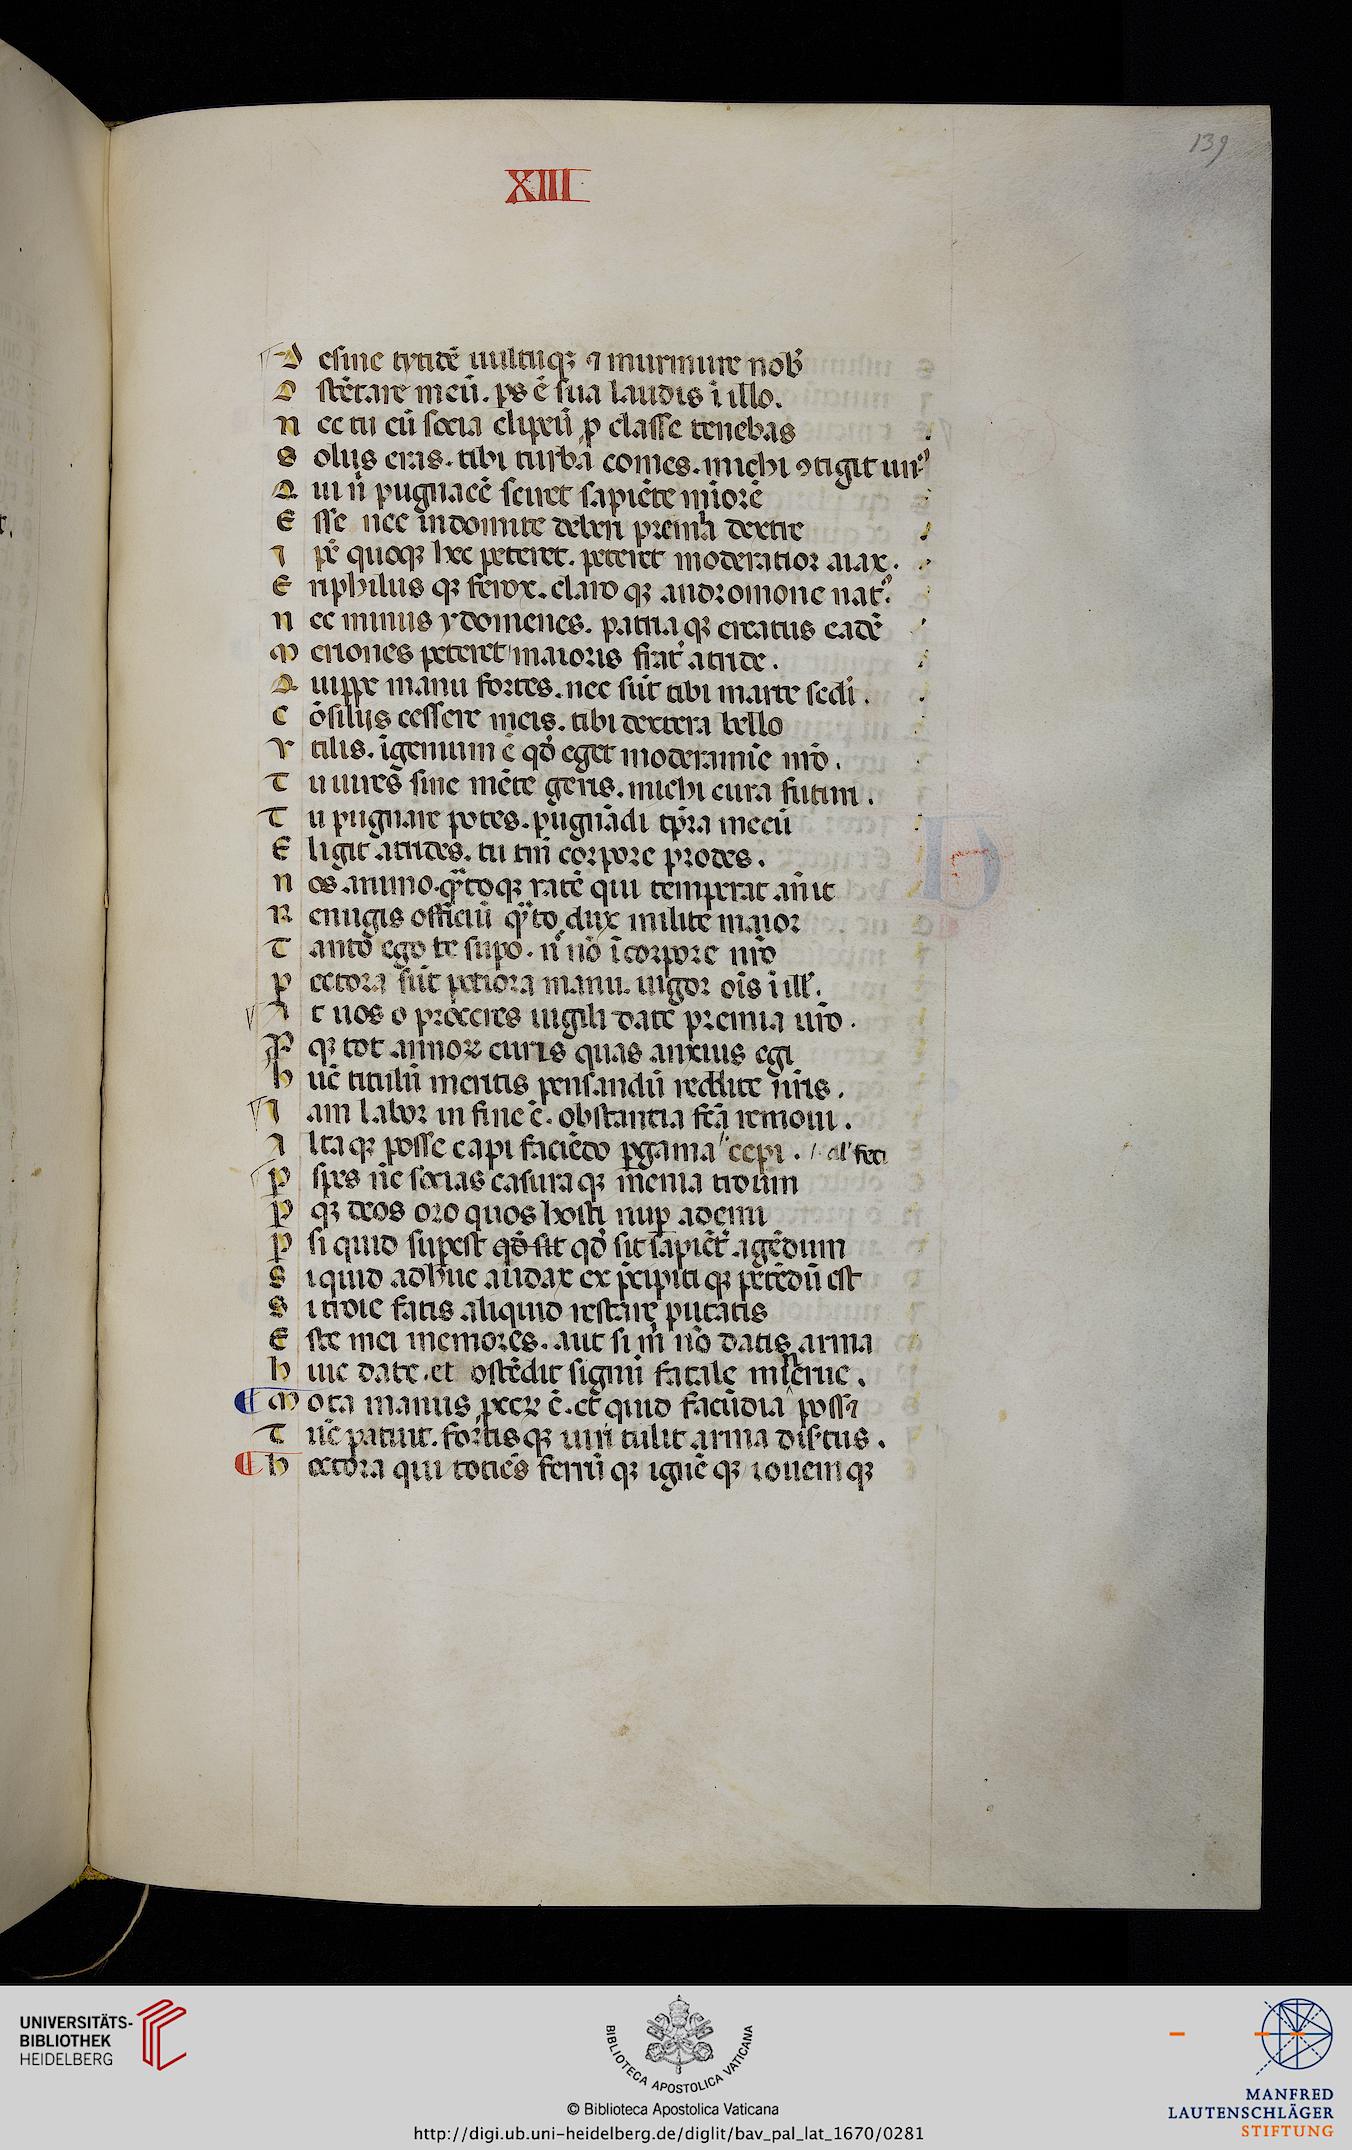 139
XIII
D esine tytidē uultuqꝫ ⁊ murmure nob̄
O stētare meū. ps ē sua laudis ī illo.
n ec tu cū socia clipeū ꝓ classe tenebas
S olus eras. tibi turbā comes. michi ꝯtigit un᷒
Q ui n̄ pugnacē sciret sapiēte mīorē
E sse nec indomite deberi premia dextre
I pē quoqꝫ hec peteret. peteret moderatior aiax.
E riphilus qꝫ ferox. claro qꝫ andromone nat᷒.
n ec minus ydomenes. patria qꝫ creatus eadē
M eriones peteret maioris frat̄ atride.
Q uippe manu fortes. nec sūt tibi marte sc̄di.
C ōsiliis cessere meis. tibi dextera bello
V tilis. īgenium ē qd̄ eget moderamīe nr̄o.
T u uires sine mēte geris. michi cura futuri.
T u pugnare potes. pugnādi tp̄ra mecū
E ligit atrides. tu tm̄ corpore prodes.
n os animo. qͣtoqꝫ ratē qui temperat anīt
R emigis officiū qͣto dux milite maior
T anto ego te suꝑo. n̄ nō ī corpore nr̄o
p ectora sūt potiora manu. uigor oīs ī ill̄.
A t uos o proceres uigili date premia ur̄o.
P qꝫ tot annoꝝ curis quas anxius egi
h uc̄ titulū meritis pensandū reddite nr̄is.
I am labor in fine ē. obstantia fc̄a remoui.
A ltaqꝫ posse capi faciēdo ꝑgama cepi. al' feci
P spes nc̄ socias casuraqꝫ menia troum
P qꝫ deos oro quos hosti nuꝑ ademi
P si quid suꝑest qd̄ sit qd̄ sit sapiēt̄ agēdum
S i quid adhuc audax ex p̄cipiti qꝫ petēdū est
S i troie fatis aliquid restare putatis
E ste mei memores. aut si m̄ nō datis arma
h uic date. et ostēdit signū fatale mīerue.
M ota manus proceꝝ ē. et quid facūdia posset
T uc̄ patuit. fortisqꝫ uiri tulit arma disertus.
h ectora qui tociēs ferrū qꝫ ignē qꝫ iouemqꝫ
UNIVERSITÄTS-
BIBLIOTHEK
HEIDELBERG
BIBLIOTECA APOSTOLICA VATICANA
© Biblioteca Apostolica Vaticana
http://digi.ub.uni-heidelberg.de/diglit/bav_pal_lat_1670/0281
MANFRED
LAUTENSCHLÄGER
STIFTUNG